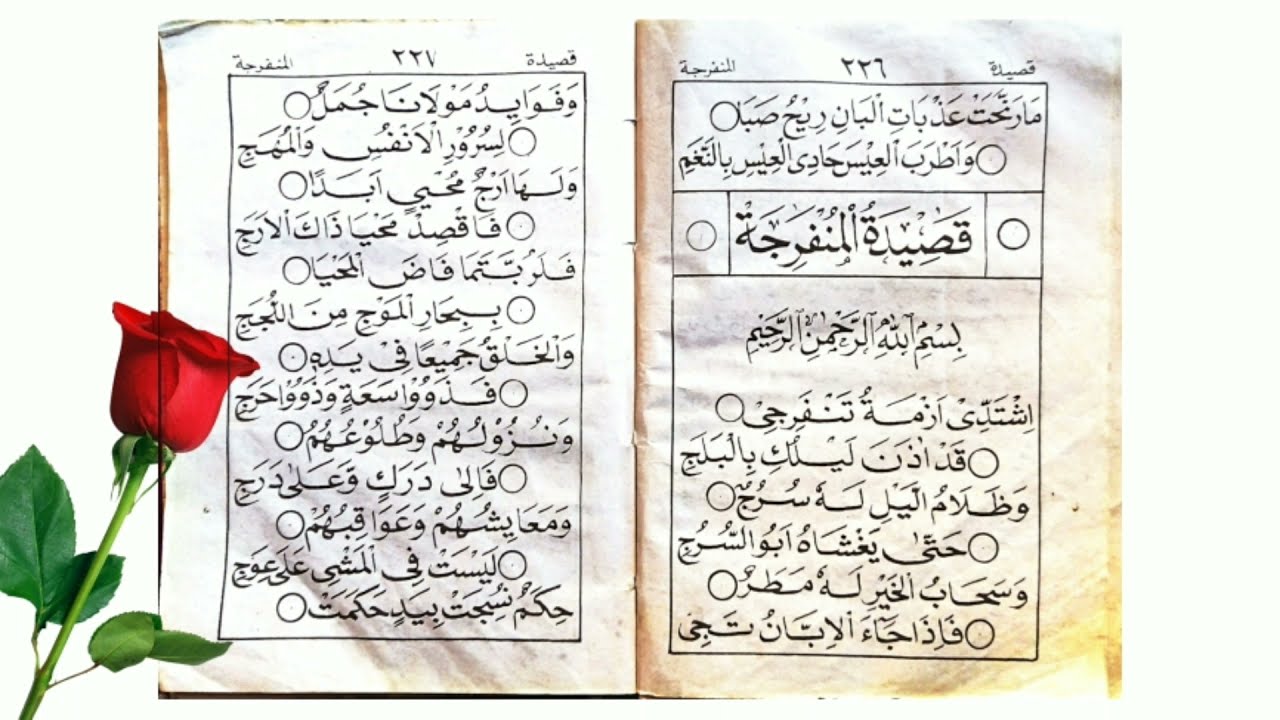 قصيدة ٢٢٦ المنفرجة
مَا رَنَّحَتْ عَذَبَاتِ الْبَانِ رِيْحُ صَبَا
وَاَطْرَبَ الْعِيْسَ حَادِى الْعِيْسِ بِالنَّغَمِ
قَصِيْدَةُ الْمُنْفَرِجَةْ
بِسْمِ اللّٰهِ الرَّحْمٰنِ الرَّحِيْمِ
اِشْتَدِّىْ اَزْمَةُ تَنْفَرِجِىْ
قَدْ اٰذَنَ لَيْلُكِ بِالْبَلَجِ
وَظَلَامُ الَّيْلِ لَهٗ سُرُجٌ
حَتّٰى يَغْشَاهُ اَبُو السُّرُجِ
وَسَحَابُ الْخَيْرِ لَهٗ مَطَرٌ
فَاِذَا جَاءَ الْاِبَّانُ تَجِىْ
قصيدة ٢٢٧ المنفرجة
وَفَوَايِدُ مَوْلَانَا جُمَلٌ
لِسُرُوْرِ الْاَنْفُسِ وَالْمُهَجِ
وَلَهَا اَرْجٌ مُحْيِي اَبَدًا
فَاقْصِدْ مَحْيَا ذَاكَ الْاَرَجِ
فَلَرُبَّتَمَا فَاضَ الْمَحْيَا
بِبِحَارِ الْمَوْجِ مِنَ اللُّجَجِ
وَالْخَلْقُ جَمِيْعًا فِىْ يَدِهٖ
فَذَوُوْا سَعَةٍ وَذَوُوْا حَرَجِ
وَنُزُوْلُهُمْ وَطُلُوْعُهُمْ
فَاِلٰى دَرَكٍ وَّعَلٰى دَرَجِ
وَمَعَايِشُهُمْ وَعَوَاقِبُهُمْ
لَيْسَتْ فِى الْمَشْىِ عَلٰى عِوَجِ
حِكَمٌ نُسِجَتْ بِيَدٍ حَكَمَتْ